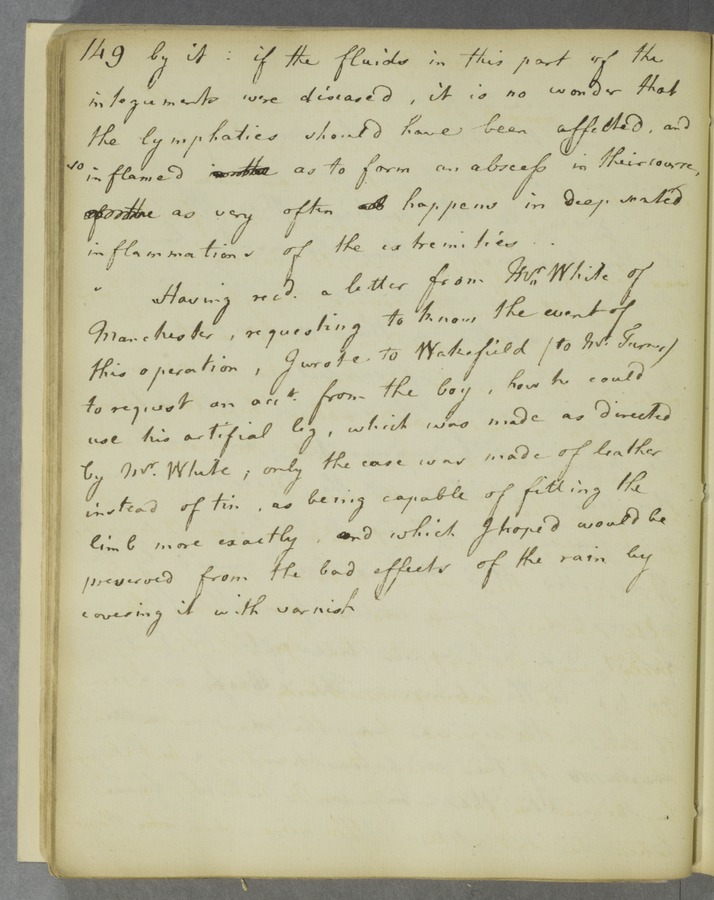 149 by it : if the fluids in this part of the
integuments were diseased, it is no wonder that
the lymphatics should have been affected, and
so inflamed as to form an abscess in their course,
as very often happens in deep seated
inflammations of the extremities . .
" Having recd. a letter from Mr. White of
Manchester, requesting to know the event of
this operation, I wrote to Wakefield (to Mr. Turner)
to request an acct. from the boy, how he could
use his artifial leg, which was made as directed
by Mr. White; only the case was made of leather
instead of tin, as being capable of fitting the
limb more exactly, and which I hoped would be
preserved from the bad effects of the rain by
covering it with varnish